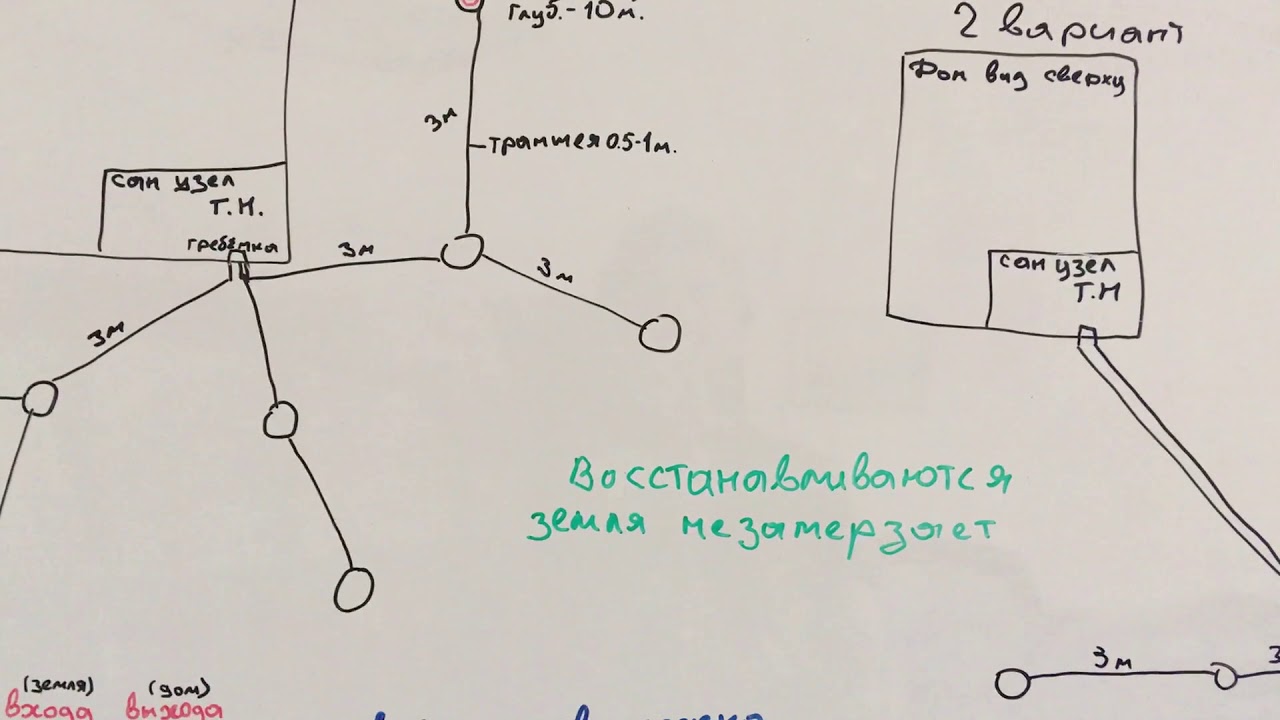 глуб.-10м.
3м
траншея 0.5-1м.
сан узел
Т.Н.
гребенка
3м
3м
3м
2 вариант
Дом вид сверху
сан узел
Т.Н
Восстанавливаются
земля незамерзает
3м
3
(земля) (дом)
входа выхода